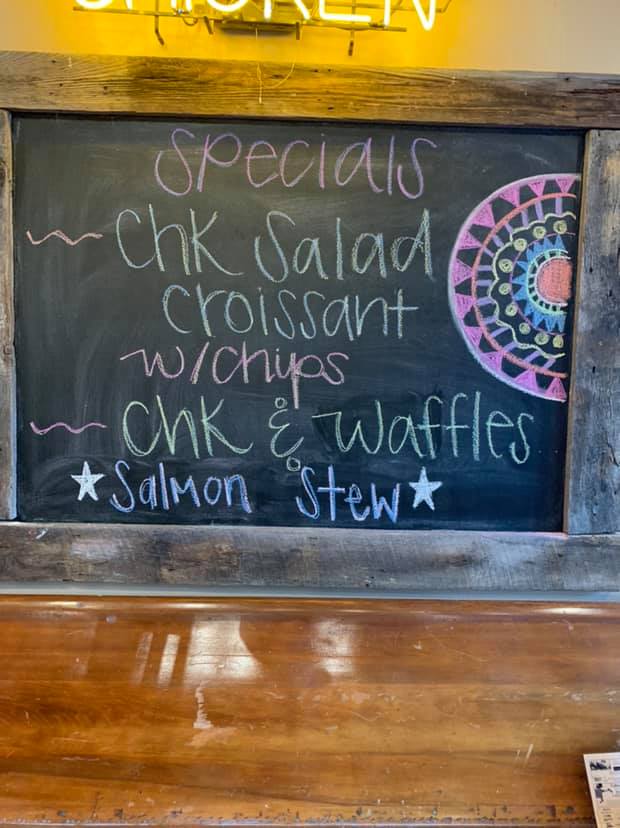 CHICKEN
Specials
Chk Salad
croissant
w/chips
Chk & Waffles
Salmon Stew